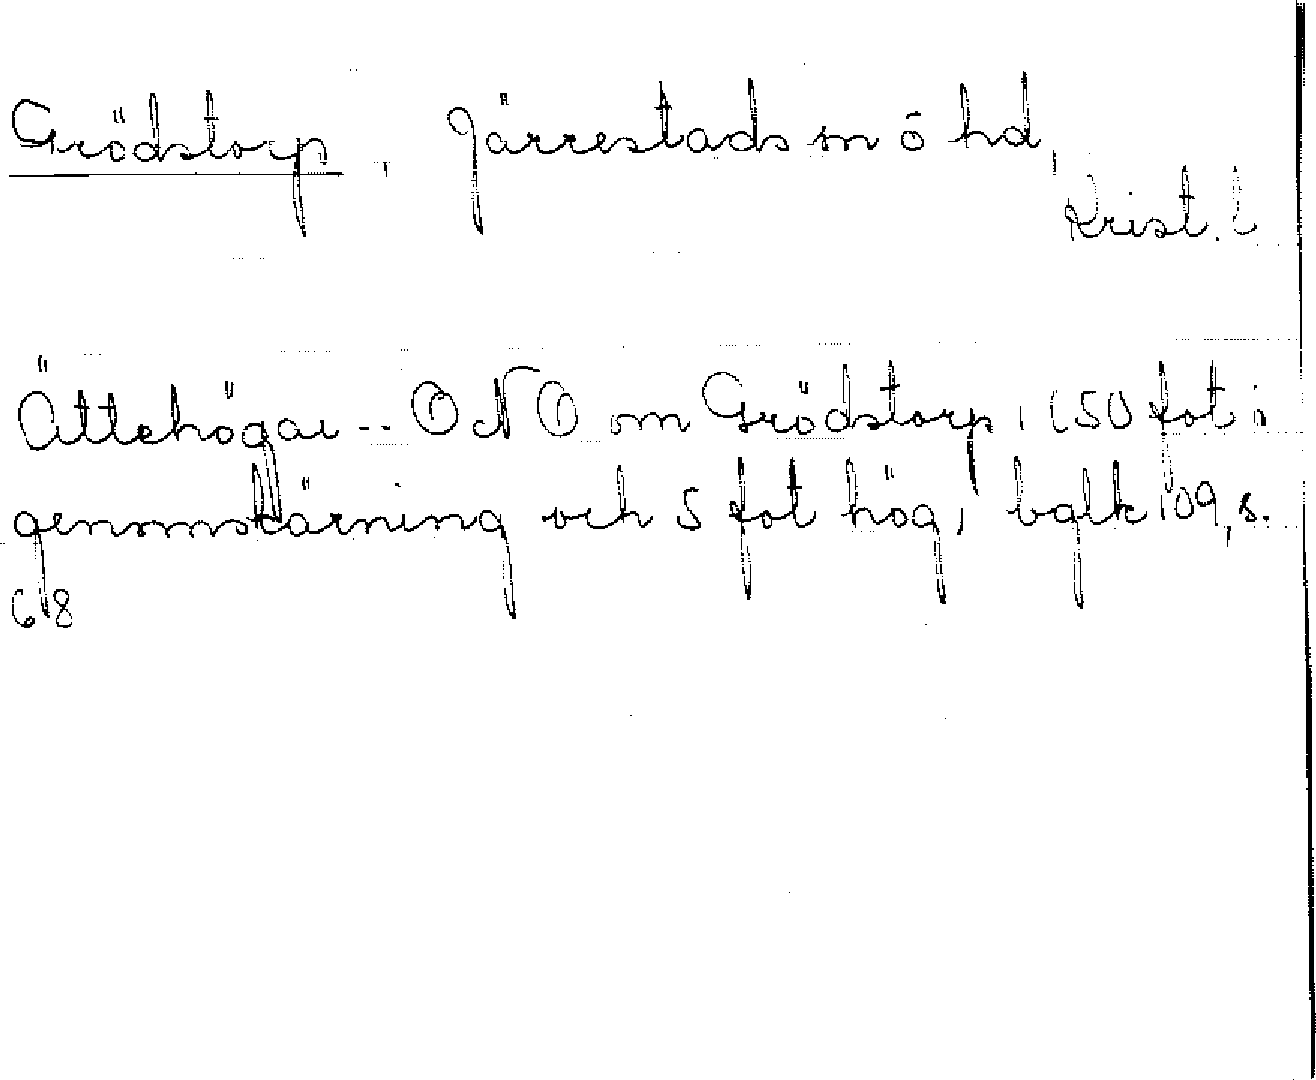 Grödstorp, Järrestads sn ō hd,
Krist. l
Ättehögar -- ONO om Grödstorp, 150 fot i
genomskärning och 5 fot hög, bglk 109, s.
68